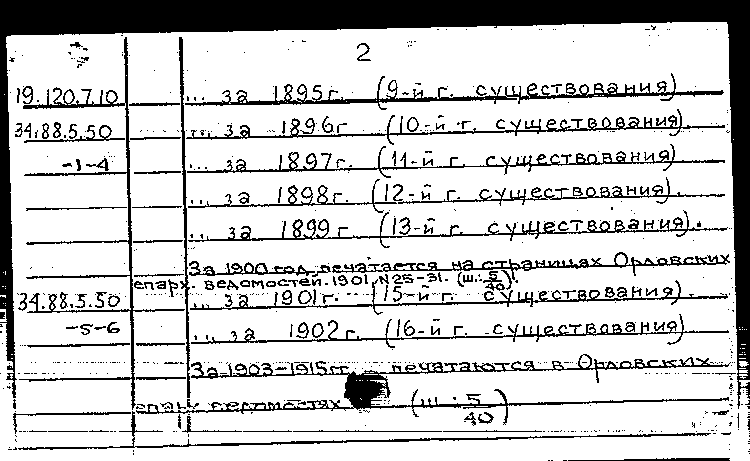 2
19.120.7.10 ... за 1895г. (9-й г. существования)
34.88.5.50 ... за 1896г (10-й г. существования).
-1-4 ... за 1897г. (11-й г. существования)
... за 1898г. (12-й г. существования).
... за 1899г (13-й г. существования).
За 1900 год печатается на страницах Орловских
епарх. ведомостей. 1901, N25-31. (ш: 5/40).
34.88.5.50 ... за 1901г. (15-й г. существования).
-5-6 ... за 1902г. (16-й г. существования)
За 1903-1915гг. печатаются в Орловских
епарх. ведомостях (ш: 5/40)